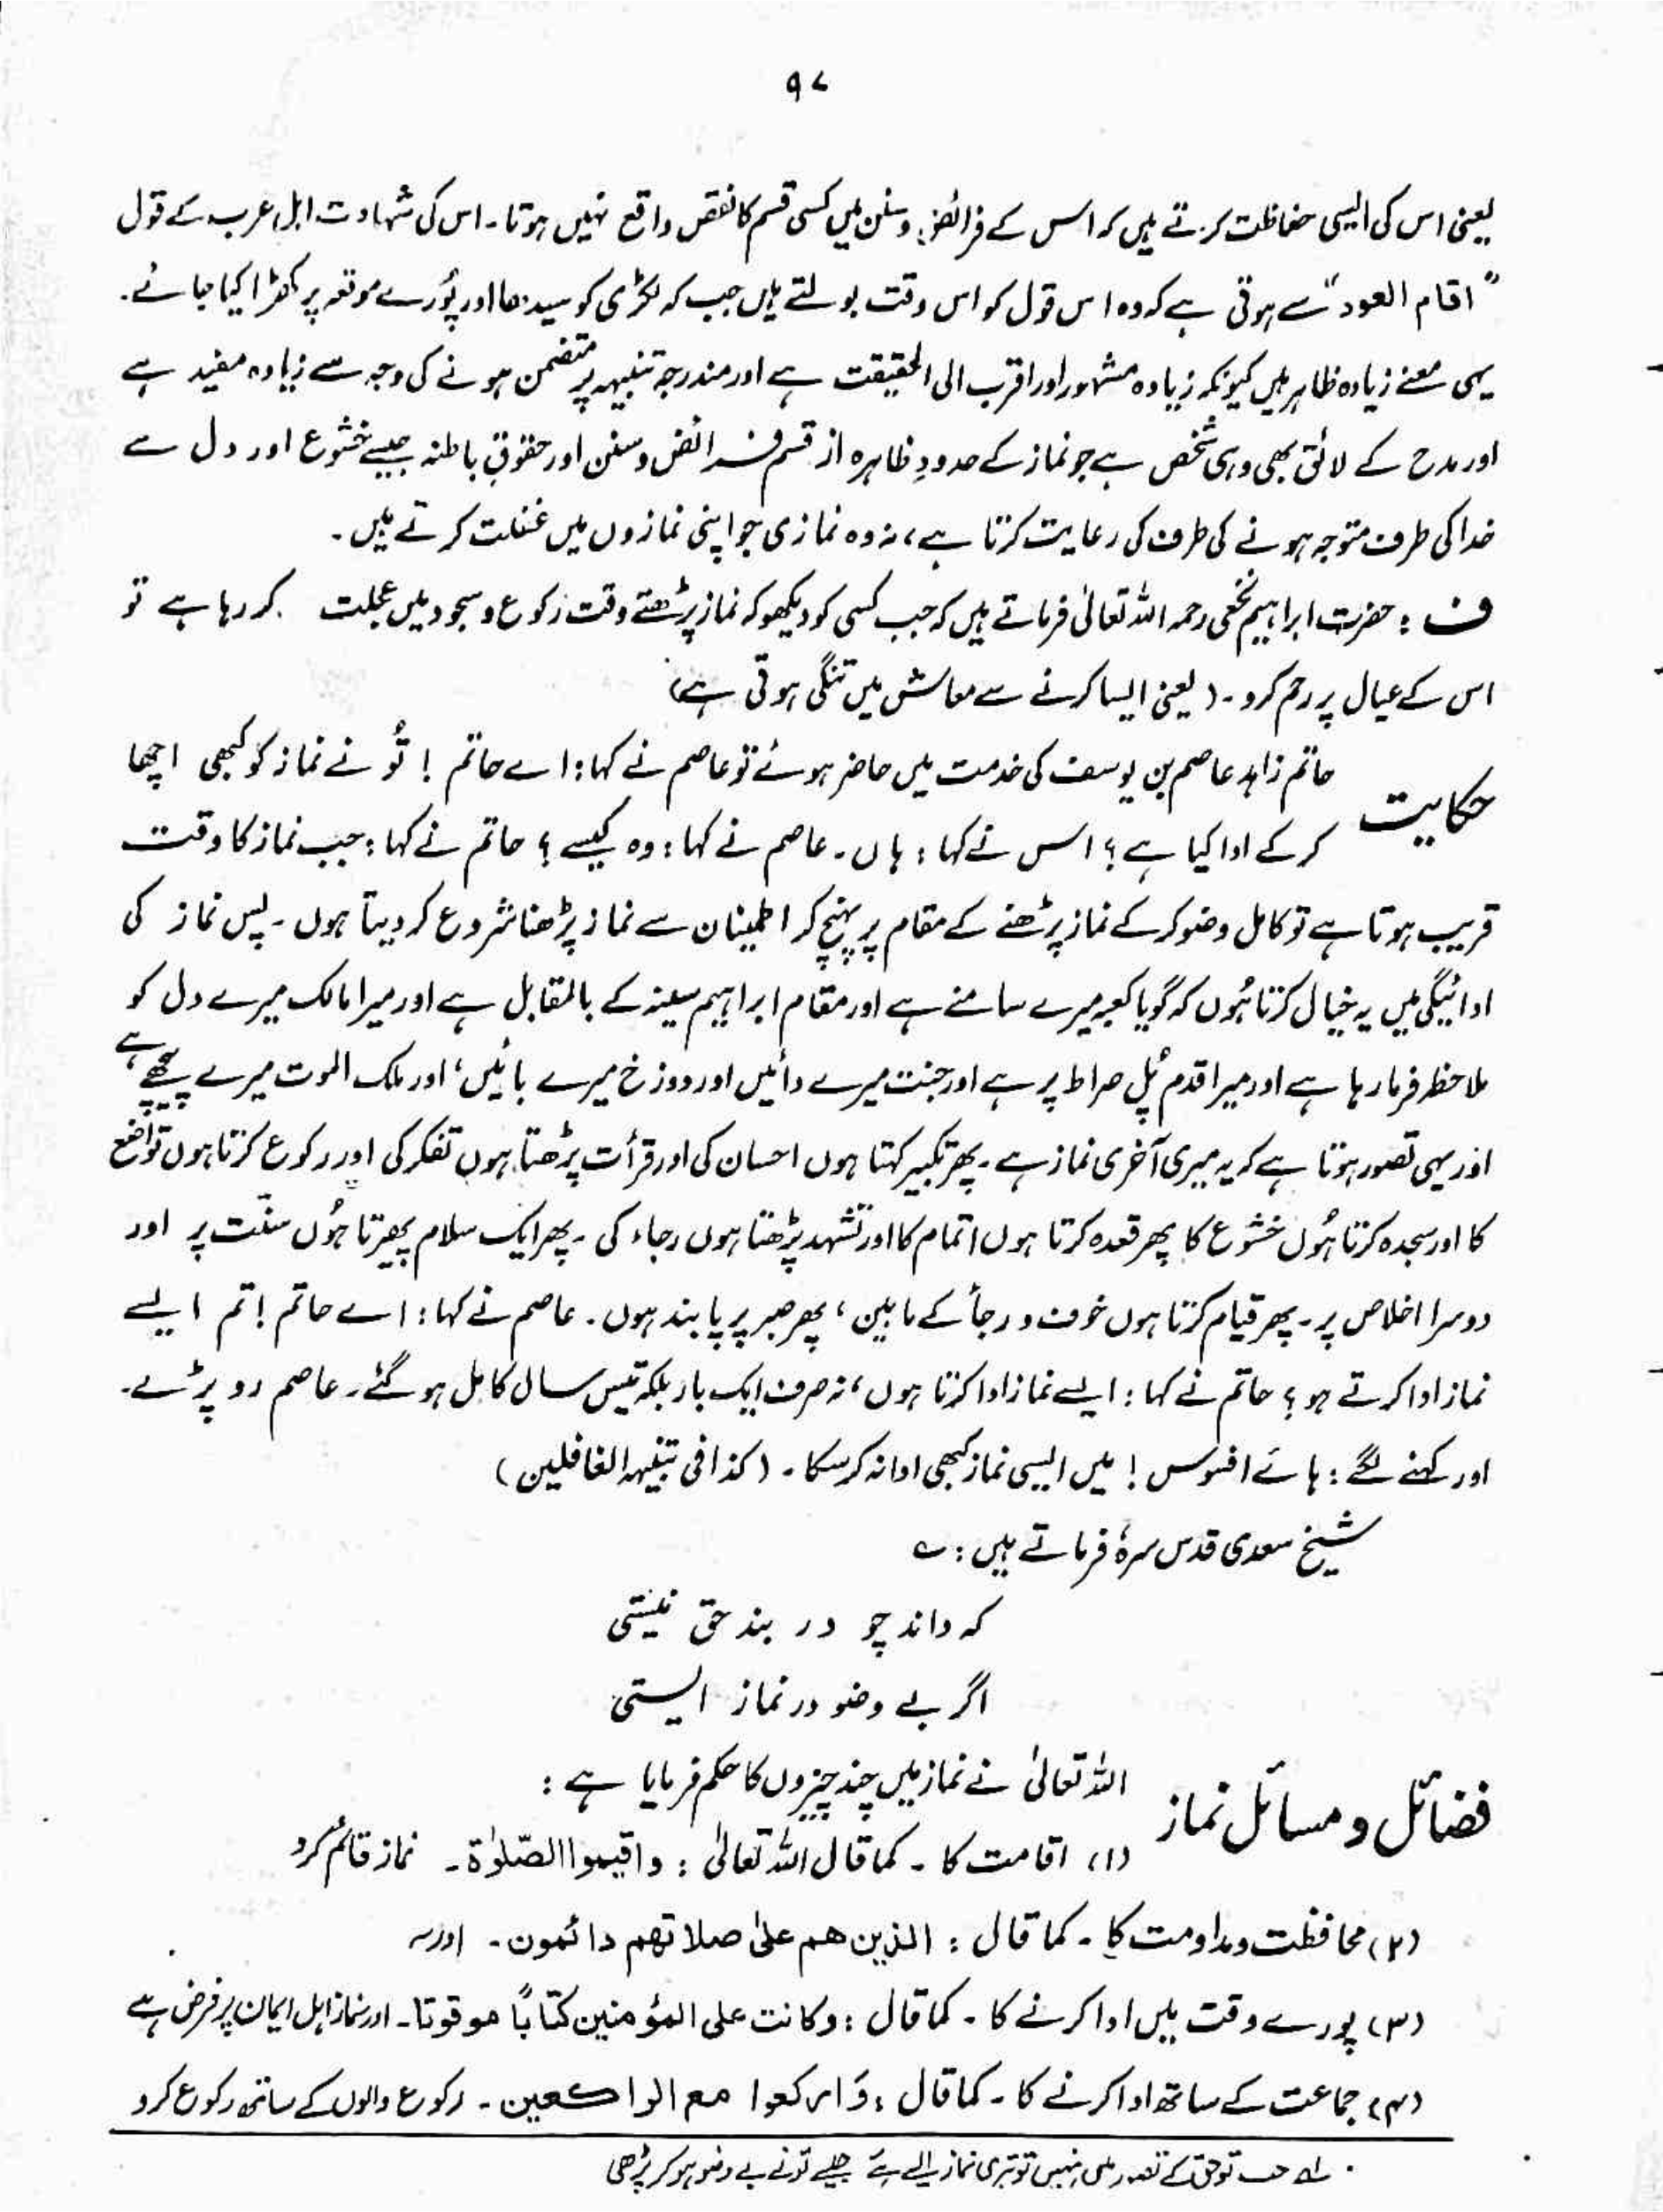 ۹۷
یعنی اس کی ایسی حفاظت کرتے ہیں کہ اس کے فرائض و سنن میں کسی قسم کا نقص واقع نہیں ہوتا۔ اس کی شہادت اہل عرب کے قول
"اقام العود" سے ہوتی ہے کہ وہ اس قول کو اس وقت بولتے ہیں جب کہ لکڑی کو سیدھا اور پُورے موقعہ پر کھڑا کیا جائے۔
یہی معنے زیادہ ظاہر ہیں کیونکہ زیادہ مشہور اور اقرب الی الحقیقت ہے اور مندرجہ تنبیہہ پر متضمن ہونے کی وجہ سے زیادہ مفید ہے
اور مدح کے لائق بھی وہی شخص ہے جو نماز کے حدودِ ظاہرہ از قسم فرائض و سنن اور حقوقِ باطنہ جیسے خشوع اور دل سے
خدا کی طرف متوجہ ہونے کی طرف کی رعایت کرتا ہے، نہ وہ نمازی جو اپنی نمازوں میں غفلت کرتے ہیں۔
ف : حضرت ابراہیم نخعی رحمہ اللہ تعالیٰ فرماتے ہیں کہ جب کسی کو دیکھو کہ نماز پڑھتے وقت رکوع و سجود میں عجلت کر رہا ہے تو
اس کے عیال پر رحم کرو۔ (یعنی ایسا کرنے سے معاش میں تنگی ہوتی ہے)
حکایت حاتم زاہد عاصم بن یوسف کی خدمت میں حاضر ہوئے تو عاصم نے کہا: اے حاتم! تُو نے نماز کو کبھی اچھا
کر کے ادا کیا ہے؟ اس نے کہا: ہاں۔ عاصم نے کہا: وہ کیسے؟ حاتم نے کہا: جب نماز کا وقت
قریب ہوتا ہے تو کامل وضو کر کے نماز پڑھنے کے مقام پر پہنچ کر اطمینان سے نماز پڑھنا شروع کر دیتا ہوں۔ پس نماز کی
ادائیگی میں یہ خیال کرتا ہُوں کہ گویا کعبہ میرے سامنے ہے اور مقام ابراہیم سینہ کے بالمقابل ہے اور میرا مالک میرے دل کو
ملاحظہ فرما رہا ہے اور میرا قدم پُل صراط پر ہے اور جنت میرے دائیں اور دوزخ میرے بائیں، اور ملک الموت میرے پیچھے ہے،
اور یہی تصور ہوتا ہے کہ یہ میری آخری نماز ہے۔ پھر تکبیر کہتا ہوں احسان کی اور قرأت پڑھتا ہوں تفکر کی اور رکوع کرتا ہوں تواضع
کا اور سجدہ کرتا ہُوں خشوع کا پھر قعدہ کرتا ہوں اتمام کا اور تشہد پڑھتا ہوں رجاء کی۔ پھر ایک سلام پھیرتا ہُوں سنّت پر اور
دوسرا اخلاص پر۔ پھر قیام کرتا ہوں خوف و رجأ کے مابین، پھر صبر پر پابند ہوں۔ عاصم نے کہا: اے حاتم! تم ایسے
نماز ادا کرتے ہو؟ حاتم نے کہا: ایسے نماز ادا کرتا ہوں، نہ صرف ایک بار بلکہ تیس سال کامل ہو گئے۔ عاصم رو پڑے۔
اور کہنے لگے: ہائے افسوس! میں ایسی نماز کبھی ادا نہ کر سکا۔ (کذا فی تنبیہہ الغافلین)
شیخ سعدی قدس سرہٗ فرماتے ہیں: ؎
کہ داند چو در بند حق نیستی
اگر بے وضو در نماز ایستی
فضائل و مسائل نماز اللہ تعالیٰ نے نماز میں چند چیزوں کا حکم فرمایا ہے:
(۱) اقامت کا۔ کما قال اللہ تعالیٰ: واقیموا الصّلوٰۃ۔ نماز قائم کرو
(۲) محافظت و مداومت کا۔ کما قال: الذین ھم علیٰ صلاتھم دائمون۔ اور
(۳) پورے وقت میں ادا کرنے کا۔ کما قال: وکانت علی المؤمنین کتابًا موقوتا۔ اور نماز اہل ایمان پر فرض ہے
(۴) جماعت کے ساتھ ادا کرنے کا۔ کما قال: وَارکعوا مع الراکعین۔ رکوع والوں کے ساتھ رکوع کرو
جب تو حق کے تصور میں نہیں تو تیری نماز ایسے ہے جیسے تو نے بے وضو ہو کر پڑھی